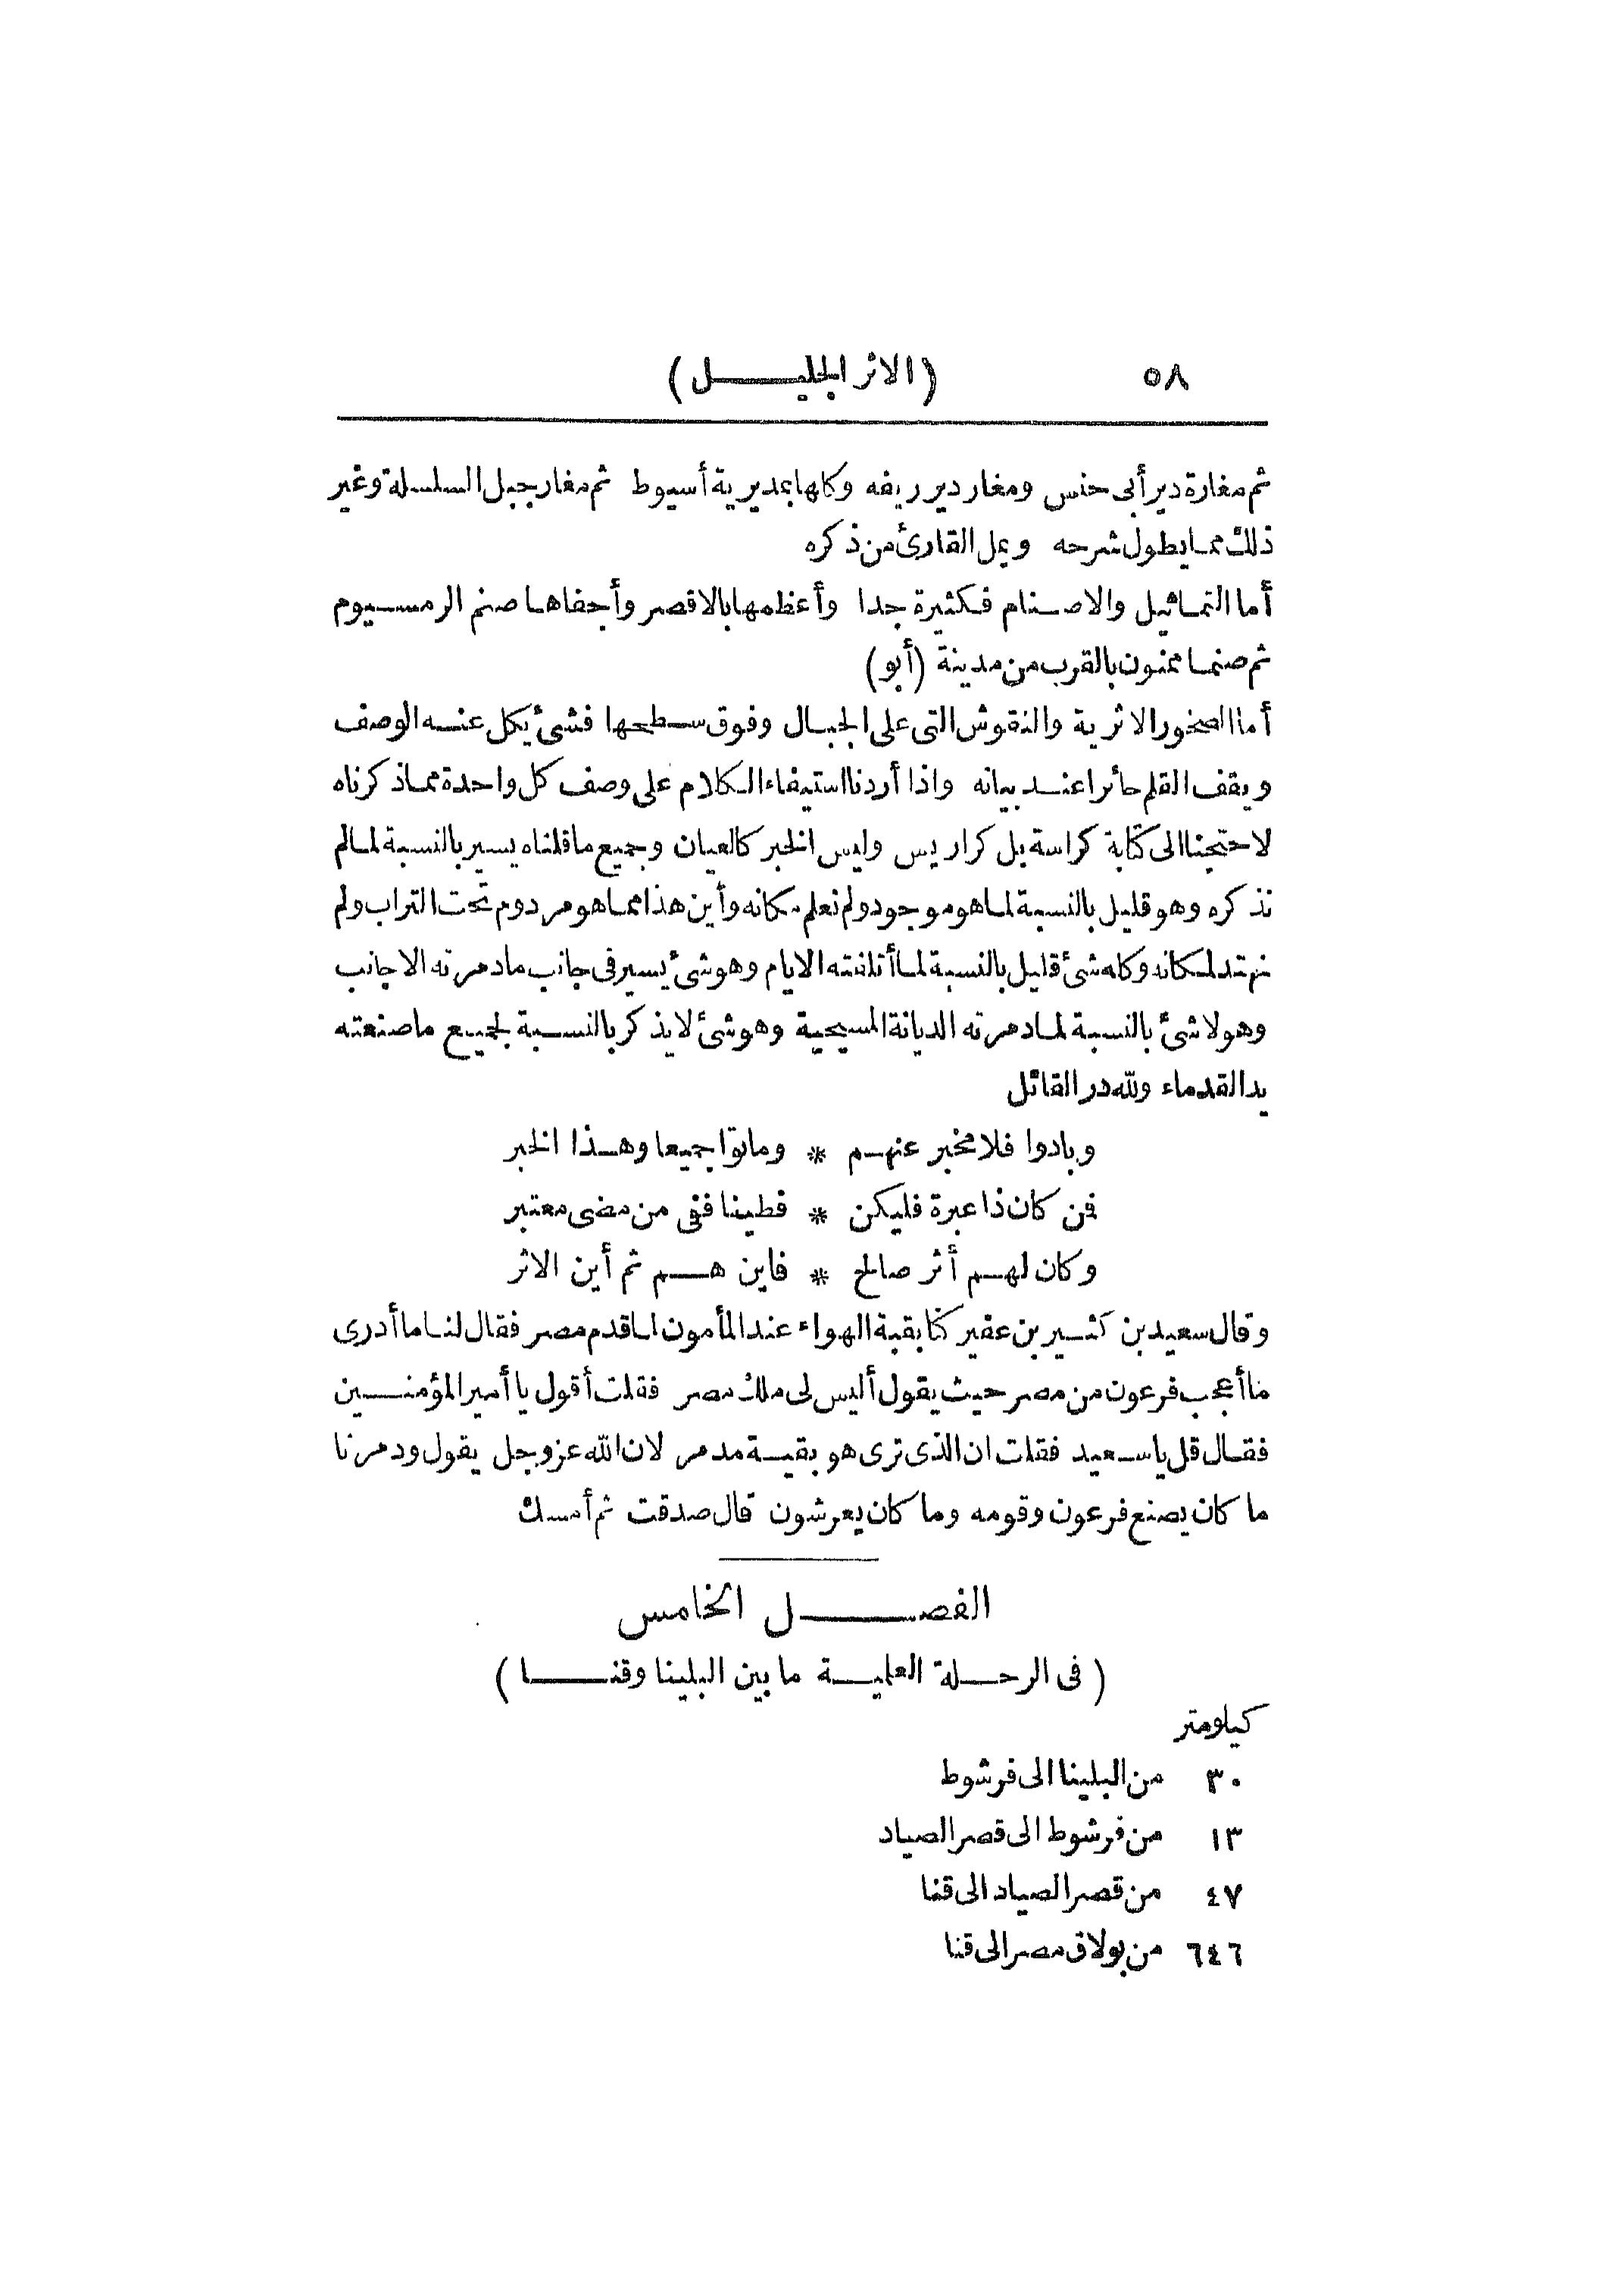 ٥٨ (الاثر الجليل)
ثم مغارة دير أبى حنس ومغار دير ريفه وكلها بمديرية أسيوط ثم مغار جبل السلسلة وغير
ذلك مما يطول شرحه ويمل القارئ من ذكره
أما التماثيل والاصنام فكثيرة جدا وأعظمها بالاقصر وأجفاها صنم الرمسيوم
ثم صنما ممنون بالقرب من مدينة (أبو)
أما الصخور الاثرية والنقوش التى على الجبال وفوق سطحها فشئ يكل عنه الوصف
ويقف القلم حائرا عند بيانه واذا أردنا استيفاء الكلام على وصف كل واحدة مما ذكرناه
لاحتجنا الى كتابة كراسة بل كراريس وليس الخبر كالعيان وجميع ما قلناه يسير بالنسبة لما لم
نذكره وهو قليل بالنسبة لما هو موجود ولم نعلم مكانه وأين هذا مما هو مردوم تحت التراب ولم
نهتد لمكانه وكله شئ قليل بالنسبة لما أتلفته الايام وهو شئ يسير فى جانب ما دمرته الاجانب
وهو لا شئ بالنسبة لما دمرته الديانة المسيحية وهو شئ لا يذكر بالنسبة لجميع ما صنعته
يد القدماء ولله در القائل
وبادوا فلا مخبر عنهم * وماتوا جميعا وهذا الخبر
فمن كان ذا عبرة فليكن * فطينا ففى من مضى معتبر
وكان لهم أثر صالح * فاين هم ثم أين الاثر
وقال سعيد بن كثير بن عقير كنا بقبة الهواء عند المأمون لما قدم مصر فقال لنا ما أدرى
ما أعجب فرعون من مصر حيث يقول أليس لى ملك مصر فقلت أقول يا أمير المؤمنين
فقال قل يا سعيد فقلت ان الذى ترى هو بقية مدمر لان الله عز وجل يقول ودمرنا
ما كان يصنع فرعون وقومه وما كان يعرشون قال صدقت ثم أمسك
الفصل الخامس
(فى الرحلة العلمية ما بين البلينا وقنا)
كيلومتر
٣٠ من البلينا الى فرشوط
١٣ من فرشوط الى قصر الصياد
٤٧ من قصر الصياد الى قنا
٦٤٦ من بولاق مصر الى قنا